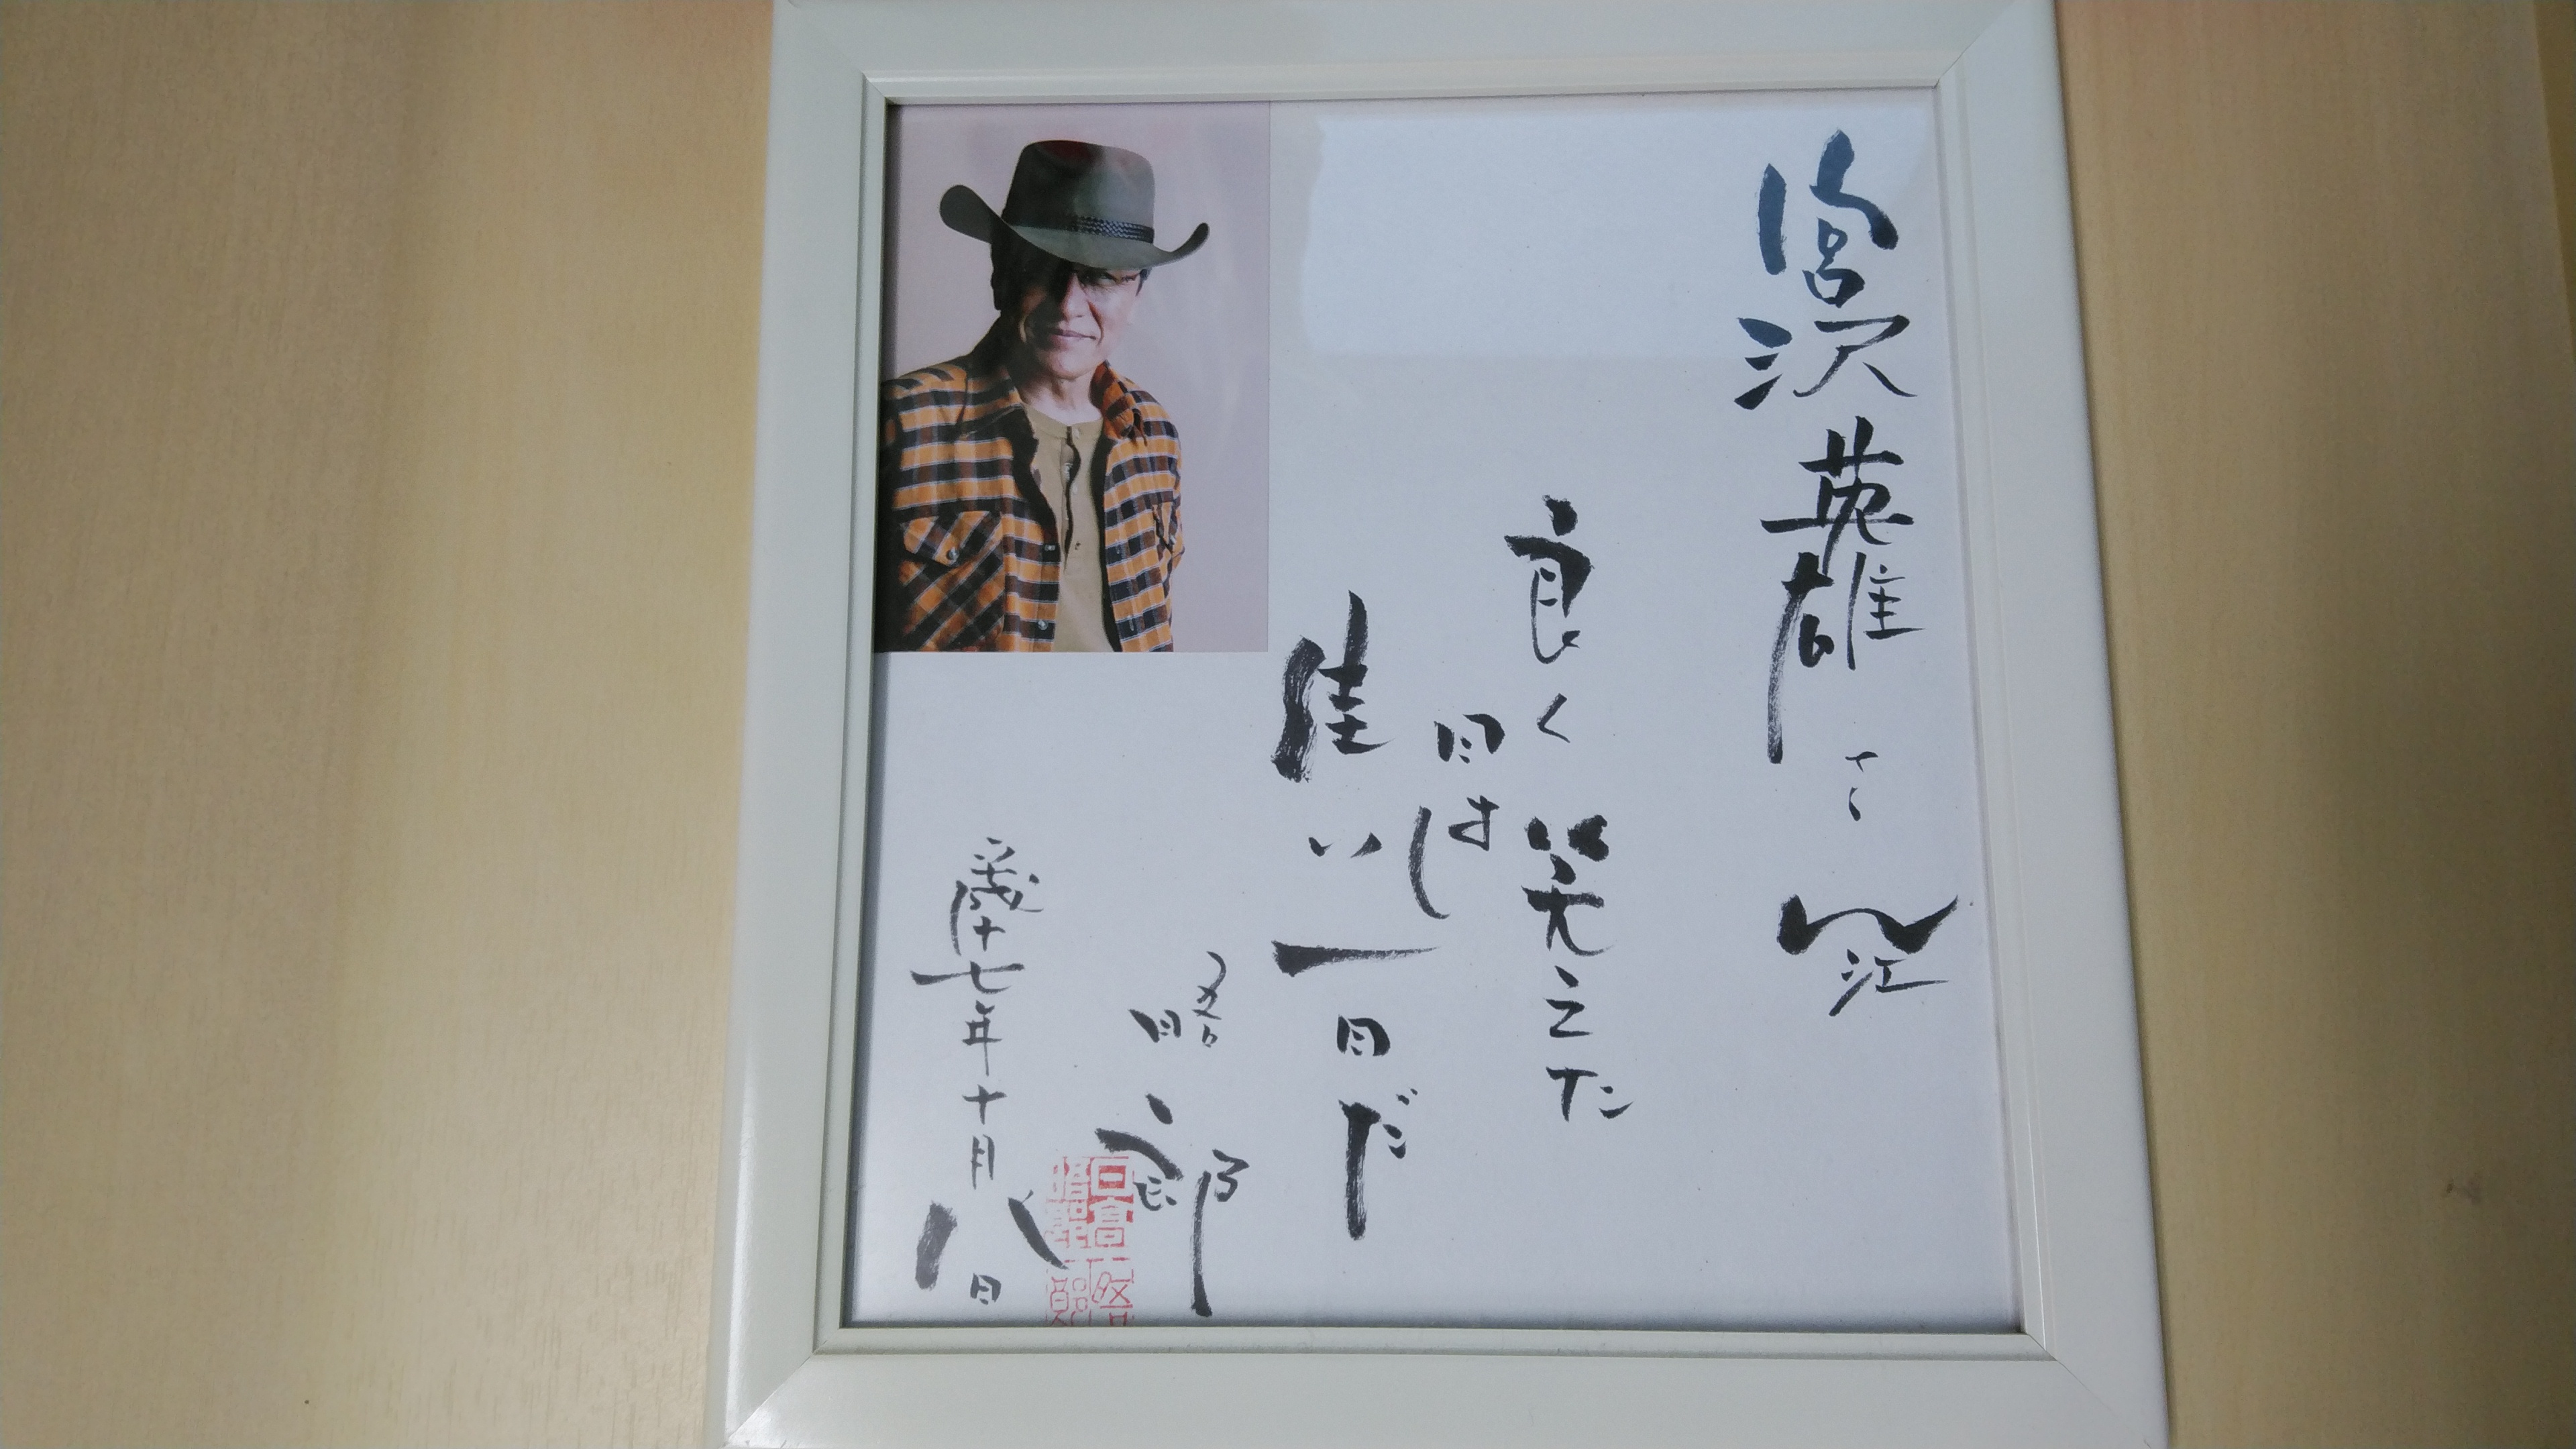 宮沢英雄さん江
良く笑えた
日は
佳い一日だ
晤郎
平成十七年十月八日